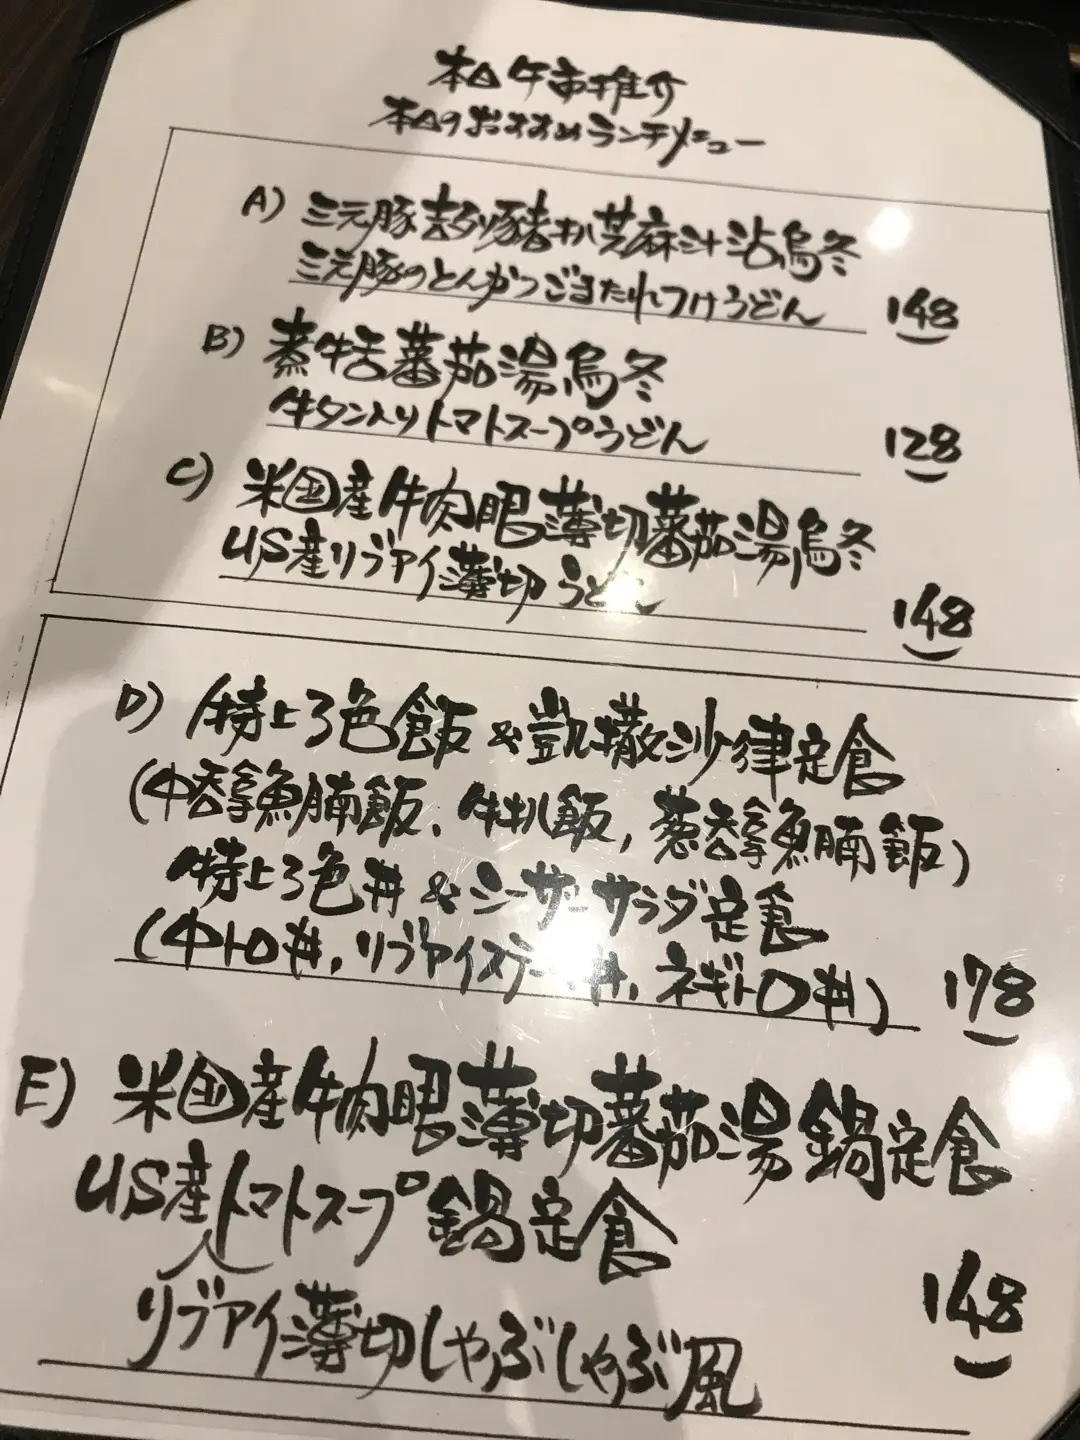 本日午市推介
本日のおすすめランチメニュー
A) 三元豚吉列豬扒芝麻汁沾烏冬
三元豚のとんかつごまたれつけうどん 148
B) 煮牛舌蕃茄湯烏冬
牛タン入りトマトスープうどん 128
C) 米国産牛肉眼薄切蕃茄湯烏冬
US産リブアイ薄切うどん 148
D) 特上3色飯&凱撒沙律定食
(中吞拿魚腩飯、牛扒飯、葱吞拿魚腩飯)
特上3色丼&シーザーサラダ定食
(中トロ丼、リブアイステーキ丼、ネギトロ丼) 178
E) 米国産牛肉眼薄切蕃茄湯鍋定食
US産トマトスープ鍋定食
リブアイ薄切しゃぶしゃぶ風 148